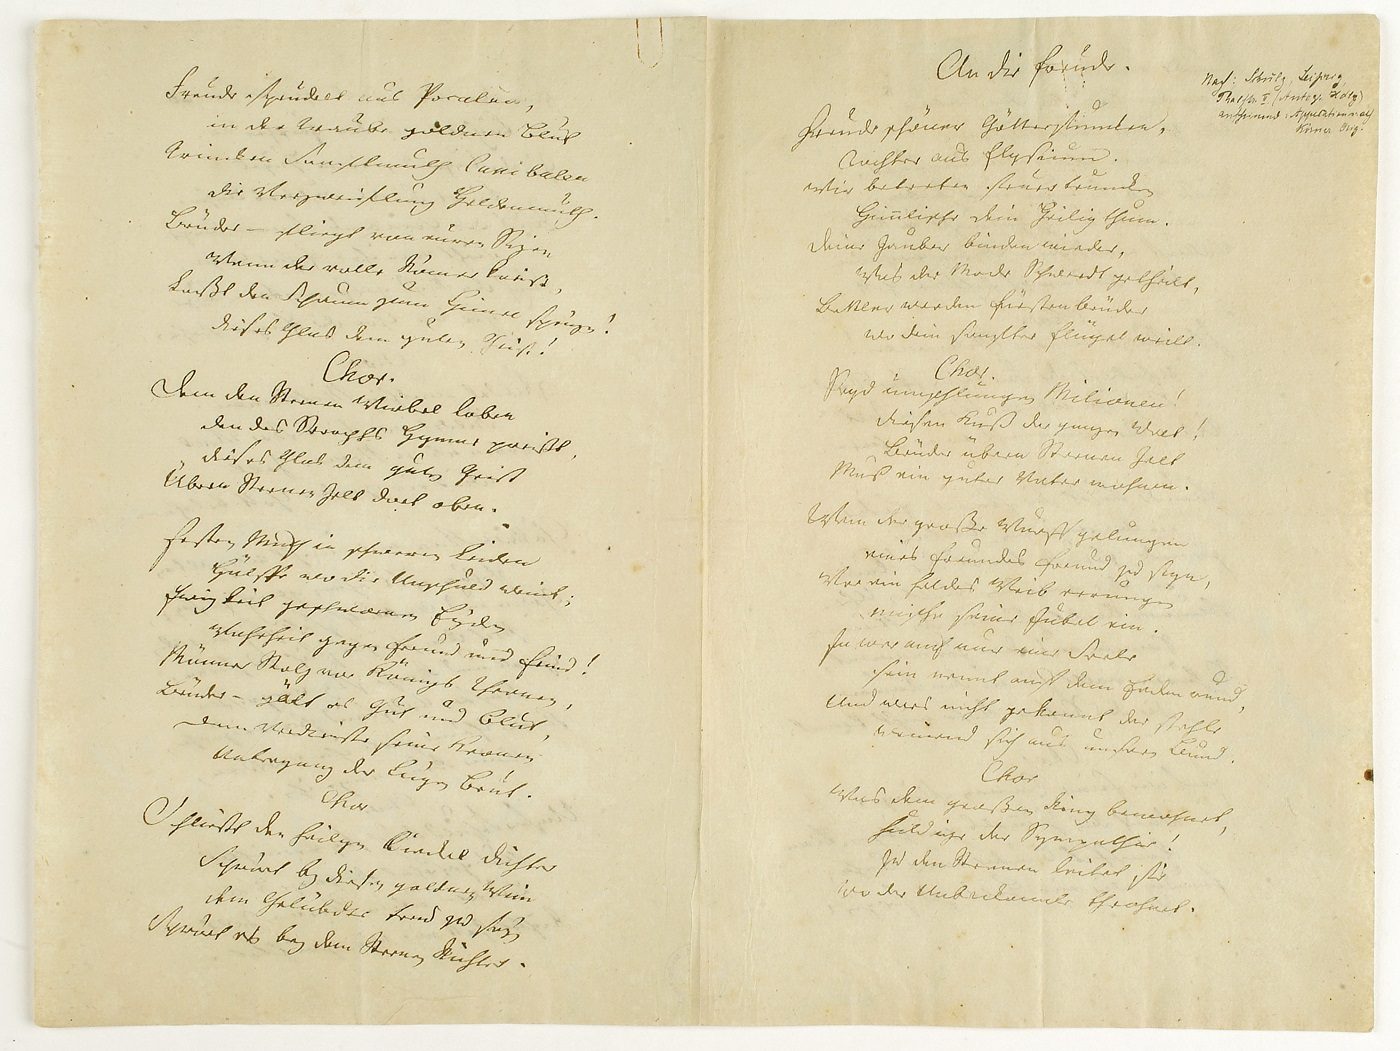 Freude sprudelt aus Pocalen,
in der Traube goldnem Blut
Trinken Sanftmuth Canibalen
die Verzweiflung Heldenmuth.
Brüder – fliegt von euren Sizen
Wenn der volle Römer kreist,
Laßt den Schaum zum Himel sprüzen!
dieses Glas dem guten Geist!
Chor.
Dem der Sternen Wirbel loben
den des Seraphs Hymne preist,
dieses Glas dem guten Geist
Überm Sternen Zelt dort oben.
Festen Muth in schwerem Leiden
Hülffe wo die Unschuld weint;
Ewigkeit geschwornen Eyden
Wahrheit gegen Freund und Feind!
Männer Stolz vor Königs Thronen,
Brüder – gält es Gut und Blut,
dem Verdienste seine Kronen
Untergang der Lügen Brut.
Chor
Schließt den heilgen Zirkel dichter
Schwört bey diesem goldnen Wein
dem Gelübde treu zu seyn
Schwört es bey dem Sternen Richter.
An die Freude.
Freude schöner Götterfunken,
Tochter aus Elysium.
Wir betreten feuertrunken
Himlische dein Heiligthum.
Deine Zauber binden wieder,
Was der Mode Schwerdt getheilt,
Bettler werden Fürstenbrüder
wo dein sanfter Flügel weilt.
Chor.
Seyd umschlungen Milionen!
diesen Kuß der ganzen Welt!
Brüder überm Sternen Zelt
Muß ein guter Vater wohnen.
Wem der große Wurff gelungen
eines Freundes Freund zu seyn,
Wer ein holdes Weib errungen
mische seine Jubel ein.
Ja wer auch nur eine Seele
sein nennt auf dem Erdenrund,
Und wers nicht gekonnt der stehle
weinend sich aus unserm Bund.
Chor
Was den großen Ring bewohnet,
huldige der Sympathie!
Zu den Sternen leitet sie
wo der Unbekannte thronet.
Nach: Schulz, Leipzig,